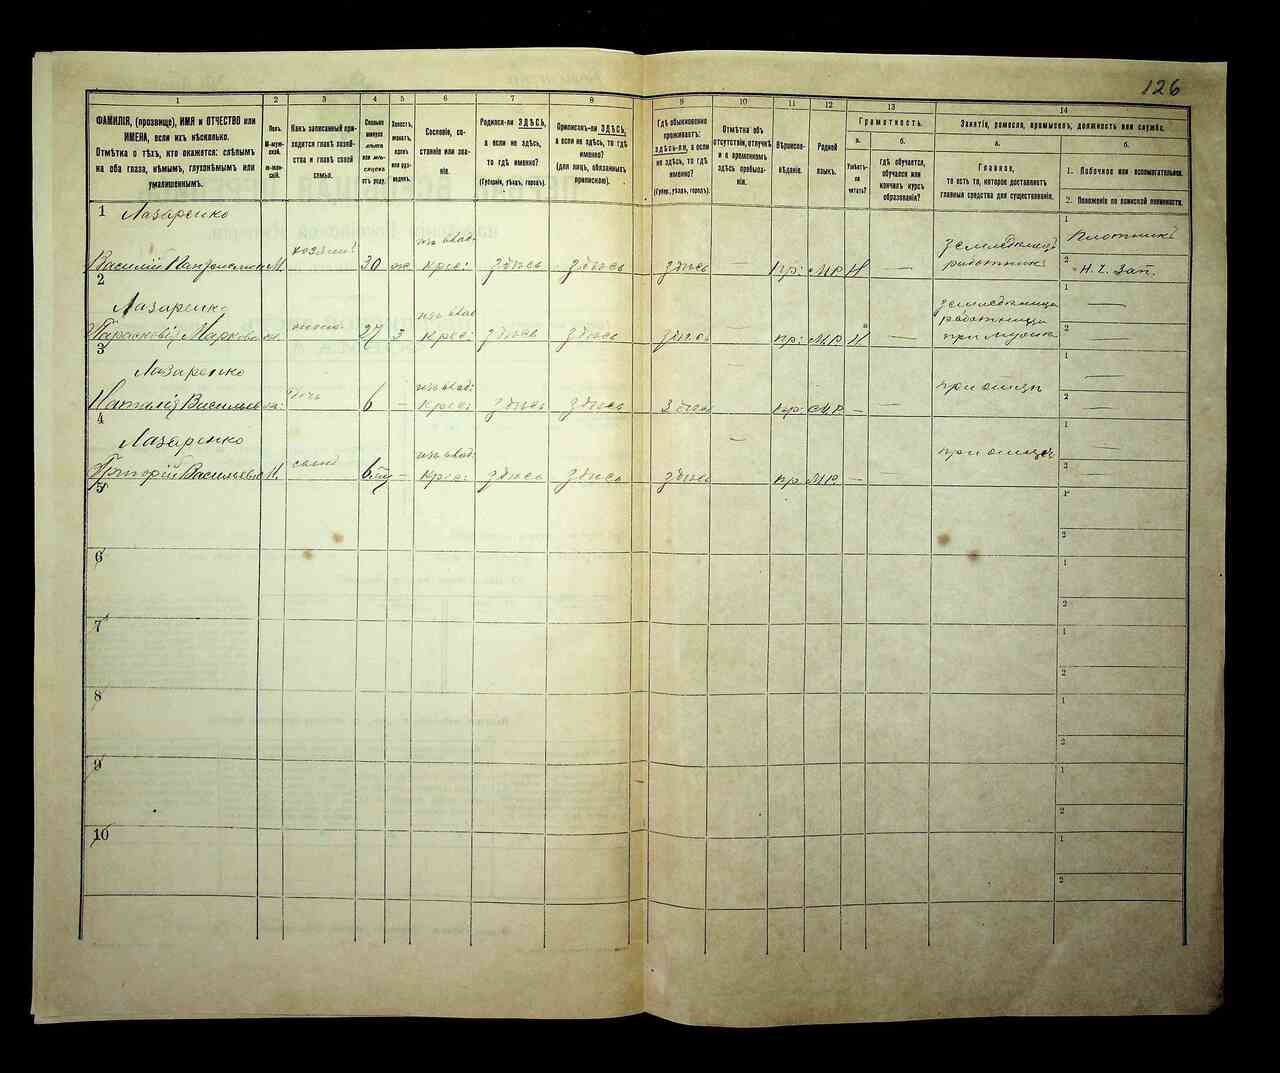 126
1 2 3 4 5 6 7 8 9 10 11 12 13 14
ФАМИЛІЯ, (прозвище), ИМЯ и ОТЧЕСТВО или
ИМЕНА, если ихъ нѣсколько.
Отмѣтка о тѣхъ, кто окажется: слѣпымъ
на оба глаза, нѣмымъ, глухонѣмымъ или
умалишеннымъ.
Полъ.
М-муж-
ской.
Ж-жен-
скій.
Какъ записанный при-
ходится главѣ хозяй-
ства и главѣ своей
семьи.
Сколько
минуло
лѣтъ
или мѣ-
сяцевъ
отъ роду.
Холостъ,
женатъ,
вдовъ
или раз-
веденъ.
Сословіе, со-
стояніе или зва-
ніе.
Родился-ли ЗДѢСЬ,
а если не здѣсь,
то гдѣ именно?
(Губернія, уѣздъ, городъ).
Приписанъ-ли ЗДѢСЬ,
а если не здѣсь, то гдѣ
именно?
(для лицъ, обязанныхъ
припискою).
Гдѣ обыкновенно
проживаетъ:
ЗДѢСЬ-ЛИ, а если
не здѣсь, то гдѣ
именно?
(Губер., уѣздъ, городъ).
Отмѣтка объ
отсутствіи, отлучкѣ
и о временномъ
здѣсь пребыва-
ніи.
Вѣроиспо-
вѣданіе.
Родной
языкъ.
Грамотность.
а.
Умѣетъ-
ли
читать?
б.
Гдѣ обучается,
обучался или
кончилъ курсъ
образованія?
Занятіе, ремесло, промыселъ, должность или служба.
а.
Главное,
то есть то, которое доставляетъ
главныя средства для существованія.
б.
1. Побочное или вспомогательное.
2. Положеніе по воинской повинности.
1 Лазаренко
Василій М. хозяинъ 30 ж изъ влад: крес: здѣсь здѣсь здѣсь — пр: МР Н — 1 Плотникъ
2 Н. Ч. Зап.
2 Лазаренко
Парасковія Марков жена 27 З изъ влад крес: здѣсь здѣсь пр: МР Н — 1 —
2 —
3 Лазаренко
Наталія Васильев дочь 6 — изъ влад: крес: здѣсь здѣсь здѣсь пр: МР — при отцѣ 1 —
2 —
4 Лазаренко
Григорій Васильевъ М. сынъ — изъ влад: крес: здѣсь здѣсь здѣсь пр МР — при отцѣ 1 —
2 —
5
1
2
6
1
2
7
1
2
8
1
2
9
1
2
10
1
2